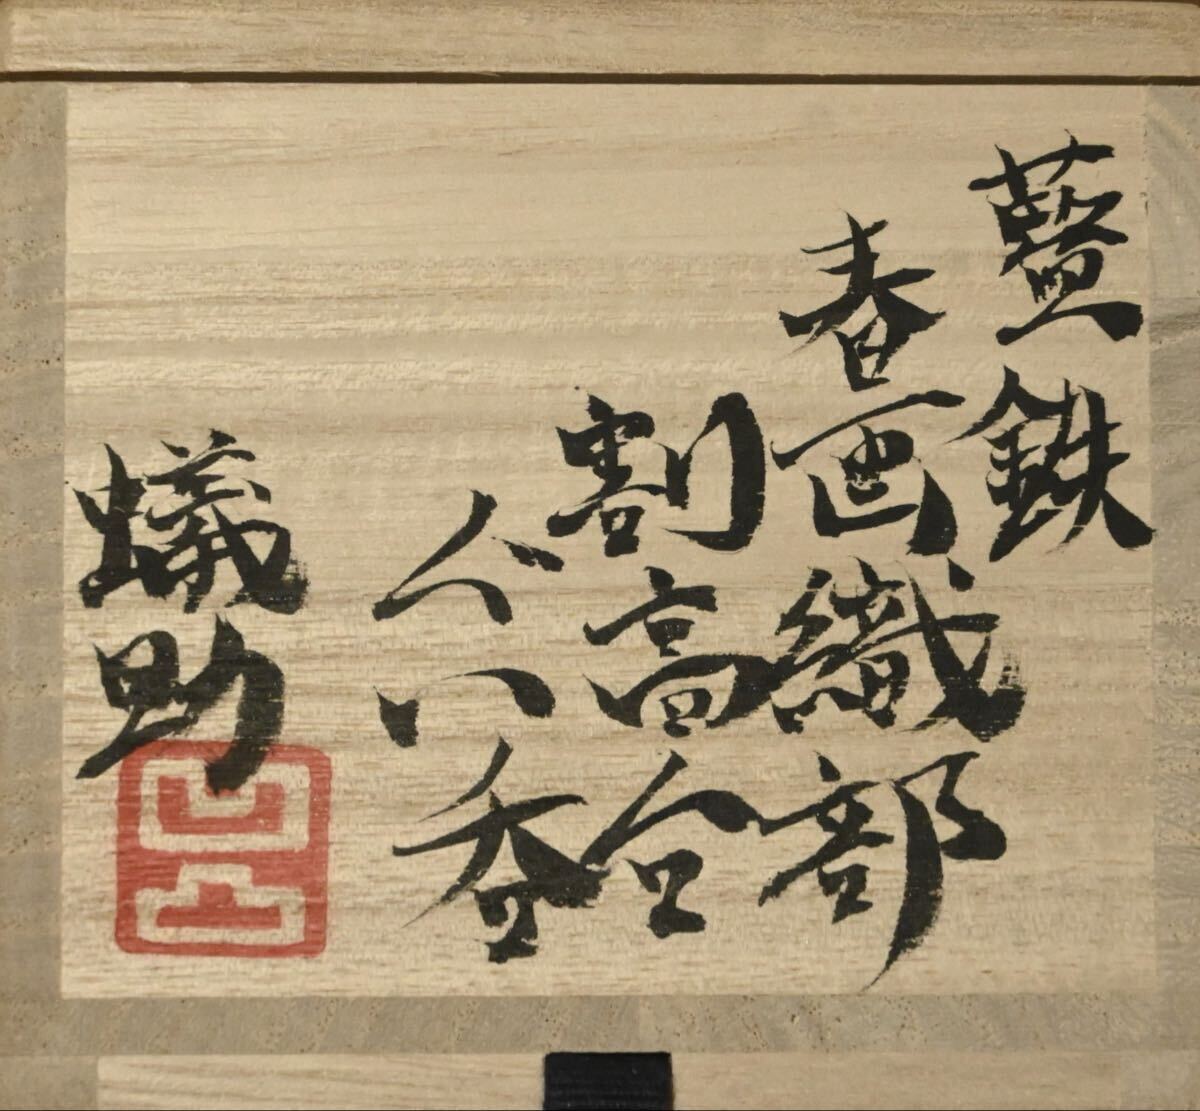 藍鉄
春画織部
割高台
ぐい呑
蟻助
凹凸